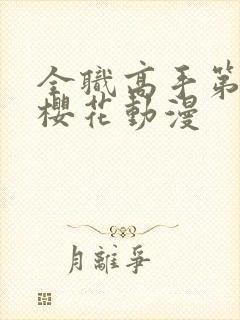 全職高手第
櫻花動漫
月離爭